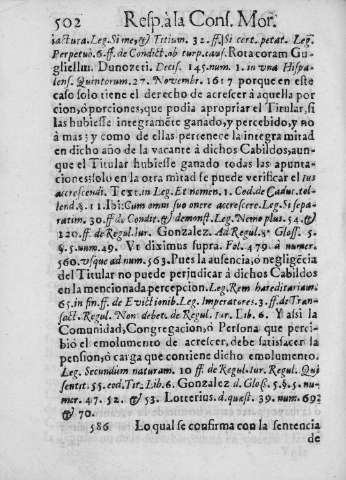 502 Resp. à la Cons. Mor.
iactura. Leg. Si me, & Titium. 32. ff. Si cert. petat. Leg.
Perpetuò. 6. ff. de Condict. ob turp. caus. Rota coram Gu-
gliellmi. Dunozeti. Decis. 145. num. 1. in vna Hispa-
lens. Quintorum. 27. Novembr. 1617 porque en este
caso solo tiene el derecho de acrescer à aquella por
cion, ò porciones, que podia apropriar el Titular, si
las hubiesse integramẽte ganado, y percebido, y no
à mas; y como de ellas pertenece la integra mitad
en dicho año de la vacante à dichos Cabildos, aun-
que el Titular hubiesse ganado todas las apunta-
ciones: solo en la otra mitad se puede verificar el Ius
accrescendi. Text. in Leg. Et nomen. 1. Cod. de Caduc. tol-
lend. §. 11. Ibi: Cum omni suo onere accrescere. Leg. Si sepa-
ratim. 30. ff. de Condit. & demonst. Leg. Nemo plus. 54. &
120. ff. de Regul. Iur. Gonzalez. Ad Regul. 8ᵉ Gloss. 5.
§. 5. num. 49. Vt diximus supra. Fol. 479. à numer.
560. vsque ad num. 563. Pues la ausencia, ò negligẽcia
del Titular no puede perjudicar à dichos Cabildos
en la mencionada percepcion. Leg. Rem hereditariam.
65. in fin. ff. de Evictionib. Leg. Imperatores. 3. ff. de Tran-
sact. Regul. Non debet. de Regul. Iur. Lib. 6. Y assi la
Comunidad, Congregacion, ò Persona que perci-
biò el emolumento de acrescer, debe satisfacer la
pension, ò carga que contiene dicho emolumento.
Leg. Secundum naturam. 10 ff. de Regul. Iur. Regul. Qui
sentit. 55. eod. Tit. Lib. 6. Gonzalez d. Gloss. 5. §. 5. nu-
mer. 47. 52. & 53. Lotterius. d. quæst. 39. num. 69²
& 70.
586 Lo qual se confirma con la sentencia
de